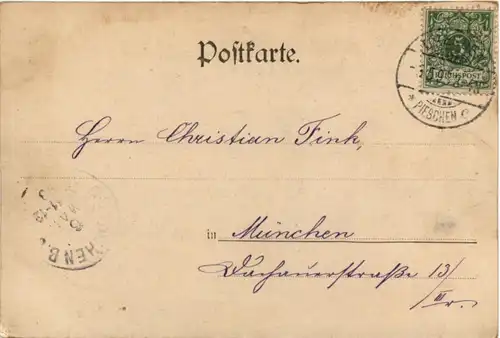 Postkarte.
PIESCHEN
Herrn Christian Fink,
in München
Dachauerstraße 13/
III r.